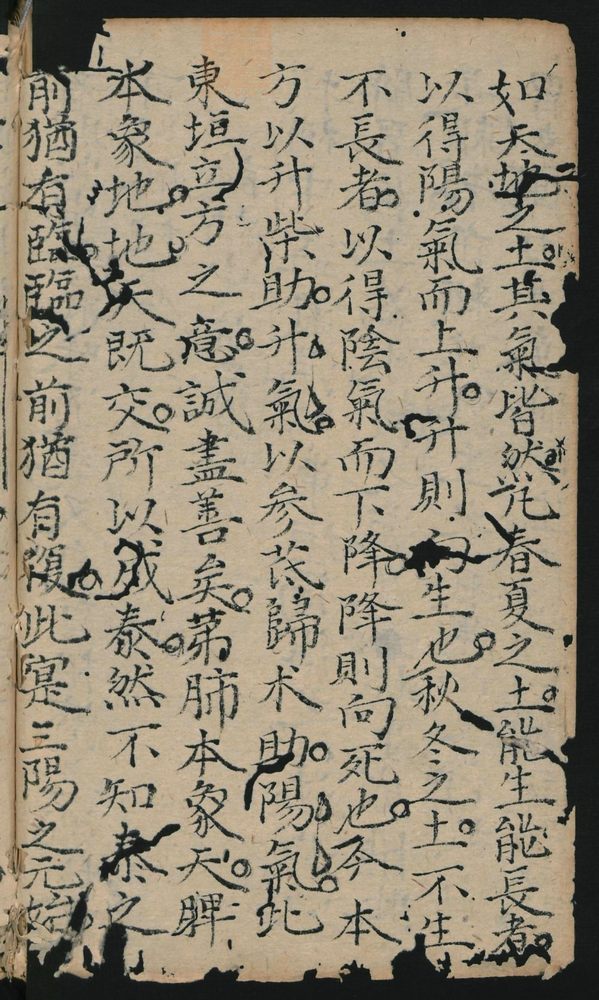 如天地之土。其氣皆然。凡春夏之土。能生能長者。
以得陽氣而上升。升則向生也。秋冬之土。不生
不長者。以得陰氣而下降。降則向死也。今本
方以升柴助。升氣。以參芪歸术助。陽氣。此
東垣立方之意。誠盡善矣。第肺本象天。脾
本象地。地。天既交。所以成泰。然不知泰之
前猶有臨。臨之前猶有復。此寔三陽之元始。